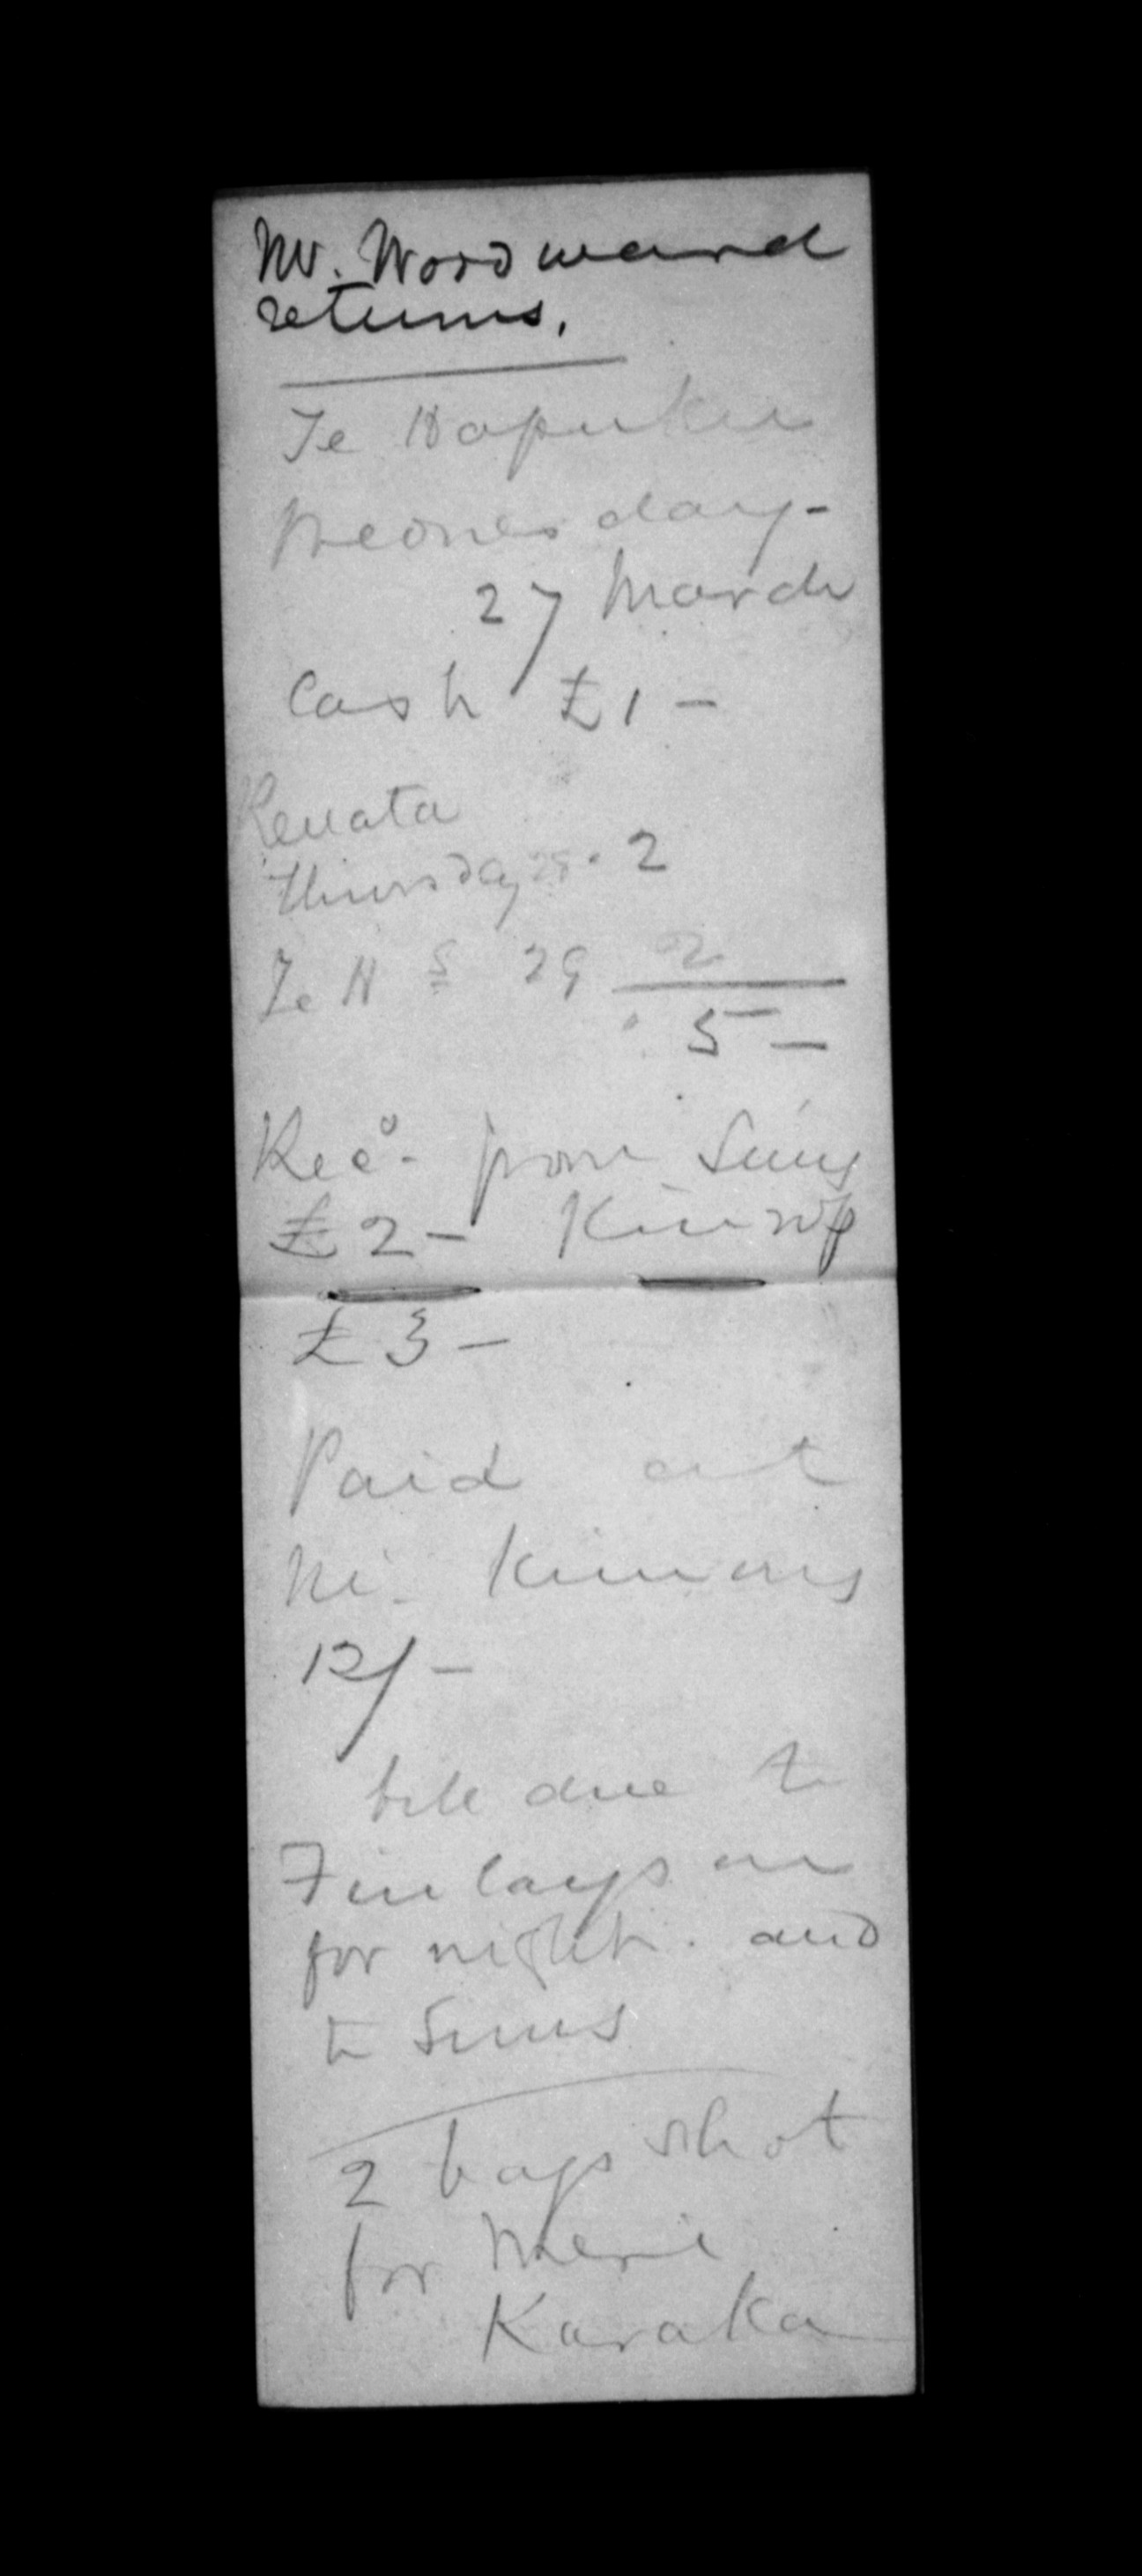 Mr. Woodward
returns.
Te Hapuku
Wednesday -
27 March
Cash £1 -
Renata
Thursday 28 . 2
Te H 29 2
5 -
Recd. from Sims
£2 -
£3 -
Paid at
12/ -
bill due to
Finlayson
for night. and
to Sims
2 bags shot
for Meri
Karaka